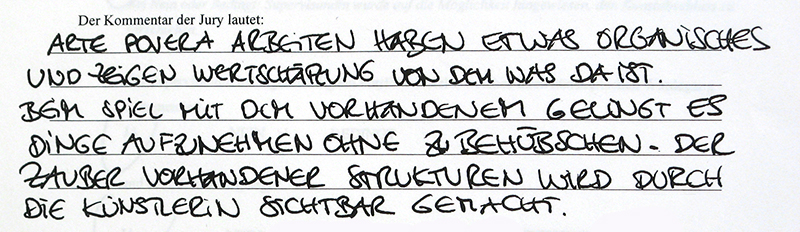 Der Kommentar der Jury lautet:
ARTE POVERA ARBEITEN HABEN ETWAS ORGANISCHES
UND ZEIGEN WERTSCHÄPUNG VON DEM WAS DA IST.
BEIM SPIEL MIT DEM VORHANDENEM GELINGT ES
DINGE AUFZUNEHMEN OHNE ZU BEHÜBSCHEN. DER
ZAUBER VORHANDENER STRUKTUREN WIRD DURCH
DIE KÜNSTLERIN SICHTBAR GEMACHT.